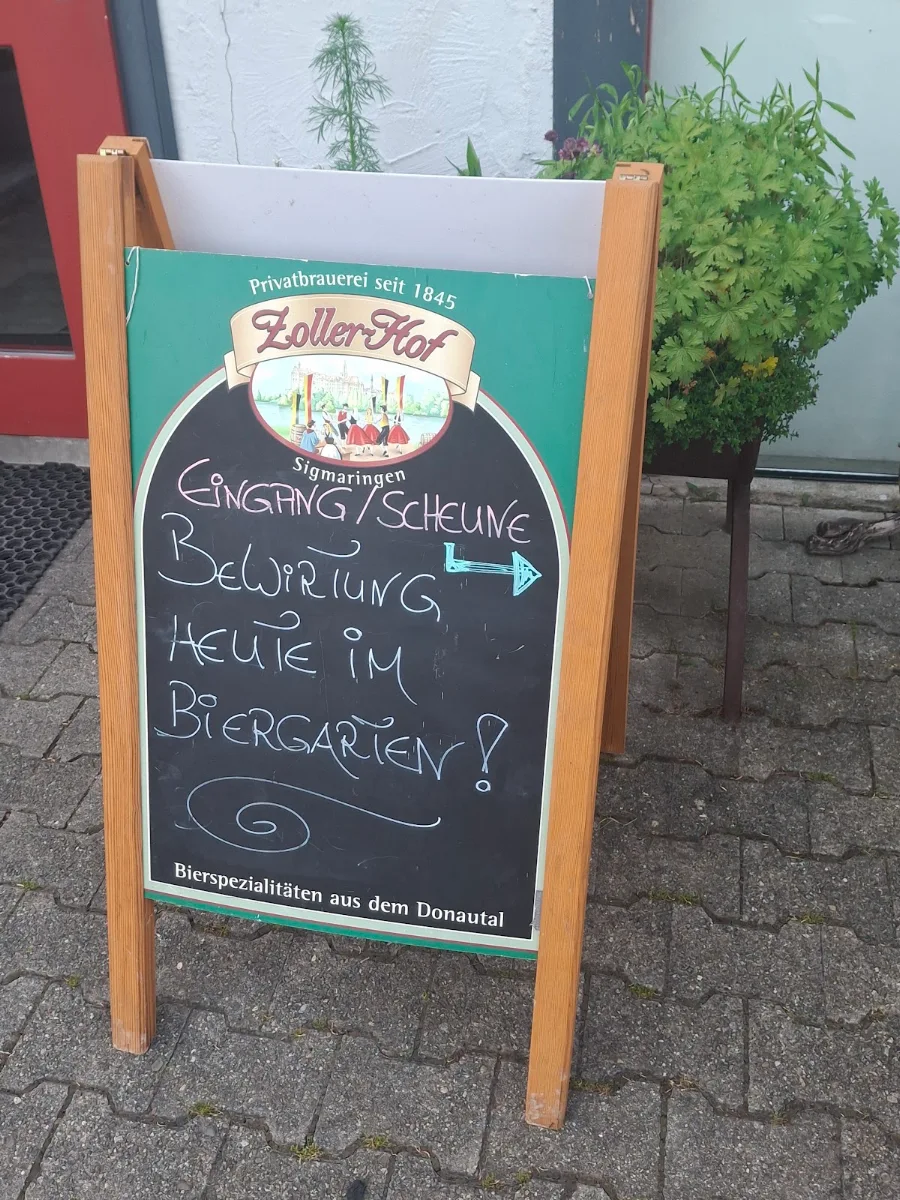 Privatbrauerei seit 1845
Zoller-Hof
Sigmaringen
EINGANG/SCHEUNE
BEWIRTUNG
HEUTE IM
BIERGARTEN!
Bierspezialitäten aus dem Donautal